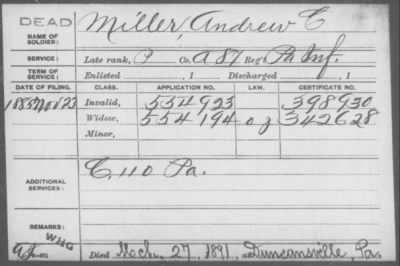 DEAD
Miller, Andrew C
NAME OF SOLDIER:
SERVICE: Late rank, P Co. A 87 Reg't Pa Inf.
TERM OF SERVICE: Enlisted , 1 Discharged , 1
DATE OF FILING. CLASS. APPLICATION NO. LAW. CERTIFICATE NO.
1885 Nov 23 Invalid, 554923 398930
Widow, 554194 342628
Minor,
ADDITIONAL SERVICES: C, 110 Pa.
REMARKS:
WHG
Died Mch. 27, 1891, at Duncansville, Pa.